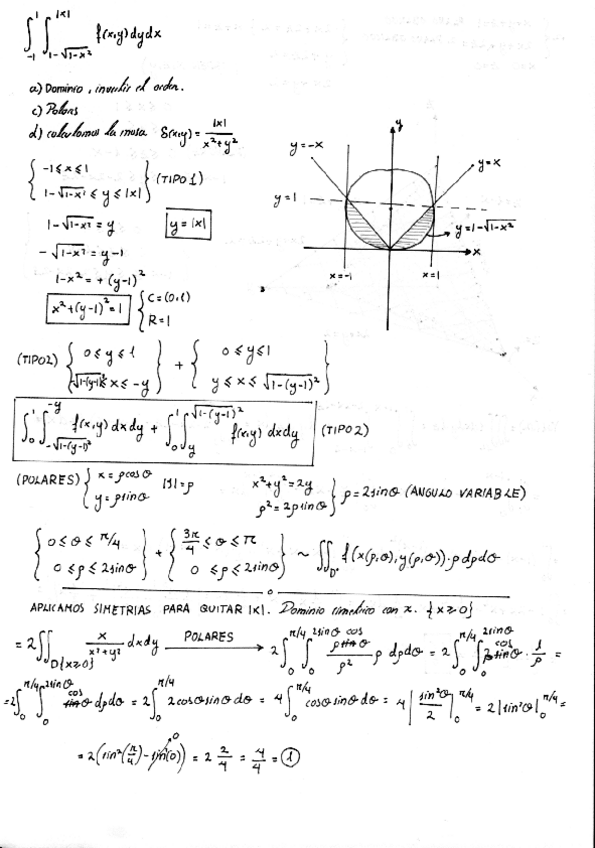 ∫₋₁¹ ∫_{1-√(1-x²)}^{|x|} f(x,y) dy dx
a) Dominio, invertir el orden.
c) Polares
d) calculamos la masa δ(x,y) = |x| / (x²+y²)
{ -1 ≤ x ≤ 1
1-√(1-x²) ≤ y ≤ |x| } (TIPO 1)
1-√(1-x²) = y
y = |x|
-√(1-x²) = y-1
1-x² = +(y-1)²
x²+(y-1)² = 1 { C=(0,1)
R=1
y
y=-x
y=x
y=1
y=1-√(1-x²)
x
x=-1
x=1
(TIPO 2) { 0 ≤ y ≤ 1
√(1-(y-1)²) ≤ x ≤ -y } + { 0 ≤ y ≤ 1
y ≤ x ≤ √(1-(y-1)²) }
∫₀¹ ∫_{-√(1-(y-1)²)}^{-y} f(x,y) dx dy + ∫₀¹ ∫_y^{√(1-(y-1)²)} f(x,y) dx dy (TIPO 2)
(POLARES) { x = ρcosθ
y = ρsinθ |J| = ρ
x²+y² = 2y
ρ² = 2ρ sinθ } ρ = 2sinθ (ANGULO VARIABLE)
{ 0 ≤ θ ≤ π/4
0 ≤ ρ ≤ 2sinθ } + { 3π/4 ≤ θ ≤ π
0 ≤ ρ ≤ 2sinθ } ~ ∬_{D*} f(x(ρ,θ), y(ρ,θ))·ρ dρdθ
APLICAMOS SIMETRIAS PARA QUITAR |X|. Dominio simetrico con x. {x ≥ 0}
= 2∬_{D{x≥0}} x/(x²+y²) dxdy POLARES → 2∫₀^{π/4} ∫₀^{2sinθ} (ρ cosθ)/ρ² ρ dρdθ = 2∫₀^{π/4} ∫₀^{2sinθ} ρ cosθ · 1/ρ =
= 2∫₀^{π/4} ∫₀^{2sinθ} cosθ dρdθ = 2∫₀^{π/4} 2cosθsinθ dθ = 4∫₀^{π/4} cosθ sinθ dθ = 4 | sin²θ/2 |₀^{π/4} = 2 | sin²θ |₀^{π/4} =
= 2(sin²(π/4) - sin²(0)) = 2 2/4 = 4/4 = 1